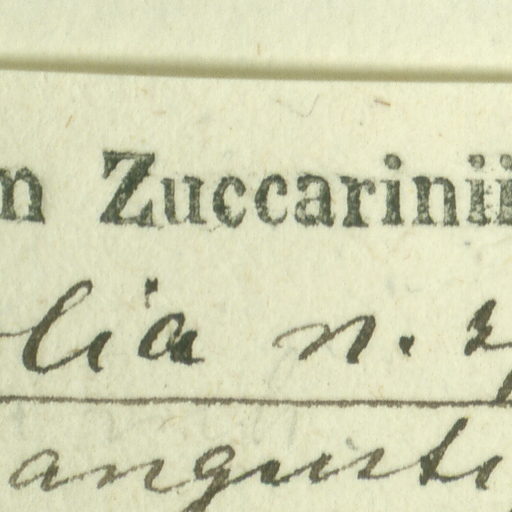 n Zuccarinii
olia n. sp
angusti